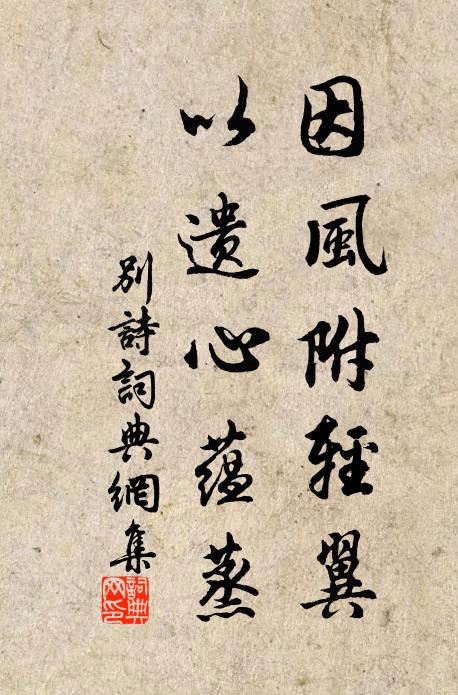 因風附輕翼
以遺心蘊蒸
別詩詞典網集
詞典網印